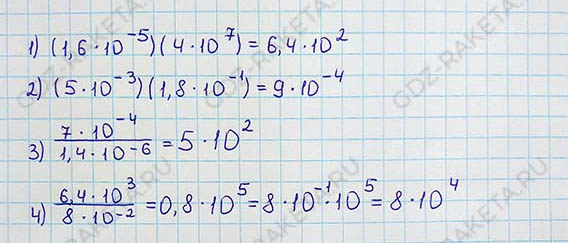 1) (1,6 · 10⁻⁵)(4 · 10⁷) = 6,4 · 10²
2) (5 · 10⁻³)(1,8 · 10⁻¹) = 9 · 10⁻⁴
3) 7 · 10⁻⁴ / 1,4 · 10⁻⁶ = 5 · 10²
4) 6,4 · 10³ / 8 · 10⁻² = 0,8 · 10⁵ = 8 · 10⁻¹ · 10⁵ = 8 · 10⁴
GDZ-RAKETA.RU